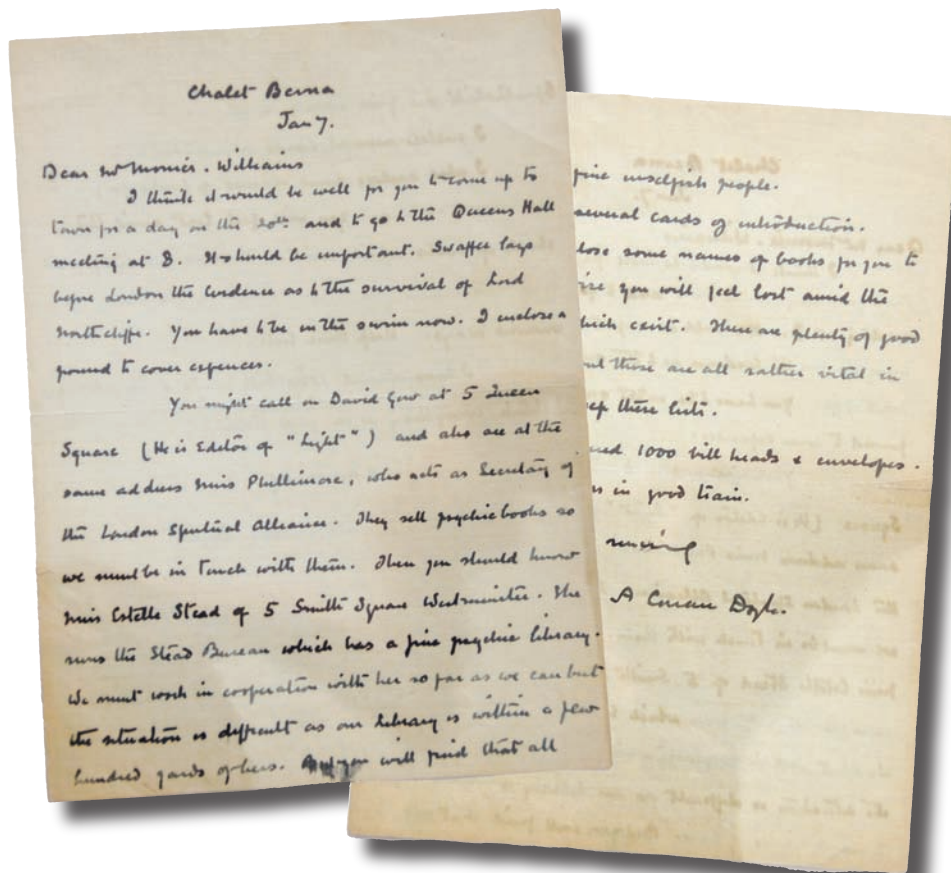 Chalet Berna
Jan 7.
Dear Mr Monier-Williams
I think it would be well for you to come up to
town for a day on the 20th and to go to the Queens Hall
meeting at 8. It should be important. Swaffer lays
before London the evidence as to the survival of Lord
Northcliffe. You have to be in the swim now. I enclose a
pound to cover expences.
You might call on David Gow at 5 Queen
Square (He is Editor of "Light") and also see at the
same address Miss Phillimore, who acts as Secretary of
the London Spiritual Alliance. They sell psychic books so
we must be in touch with them. Then you should know
Miss Estelle Stead of 5 Smith Square Westminster. She
runs the Stead Bureau which has a fine psychic library.
We must work in cooperation with her so far as we can but
the situation is difficult as our library is within a few
hundred yards of hers. But you will find that all
fine unselfish people.
several cards of introduction.
close some names of books for you to
you will feel lost amid the
which exist. There are plenty of good
but these are all rather vital in
these lists.
1000 bill heads & envelopes.
in good train.
A Conan Doyle.